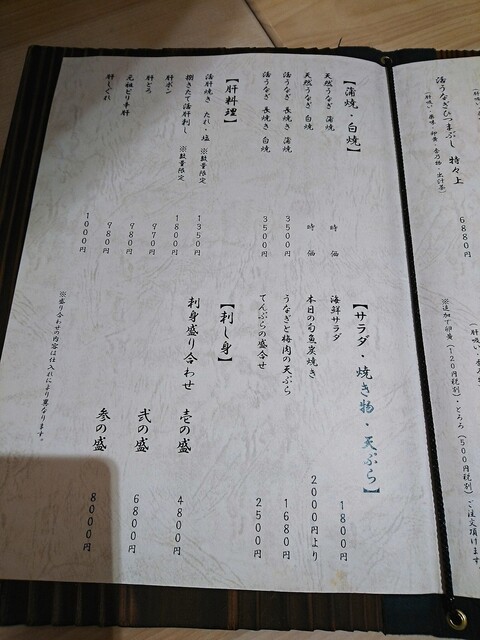 活うなぎひつまぶし 特々上 6880円
(肝吸い・薬味・卵黄・香乃物・出汁茶)
※追加で卵黄(120円税別)・とろろ(500円税別)ご注文頂けます。
【蒲焼・白焼】
天然うなぎ 蒲焼 時価
天然うなぎ 白焼 時価
活うなぎ 長焼き 蒲焼 3500円
活うなぎ 長焼き 白焼 3500円
【肝料理】
活肝焼き たれ・塩 ※数量限定 1350円
捌きたて活肝刺し ※数量限定 1800円
肝ポン 970円
肝とろ 980円
元祖ピリ辛肝 980円
肝しぐれ 1000円
【サラダ・焼き物・天ぷら】
海鮮サラダ 1800円
本日の旬魚炭焼き 2000円より
うなぎと梅肉の天ぷら 1680円
てんぷらの盛合せ 2500円
【刺し身】
刺身盛り合わせ 壱の盛 4800円
弐の盛 6800円
参の盛 8000円
※盛り合わせの内容は仕入れにより異なります。